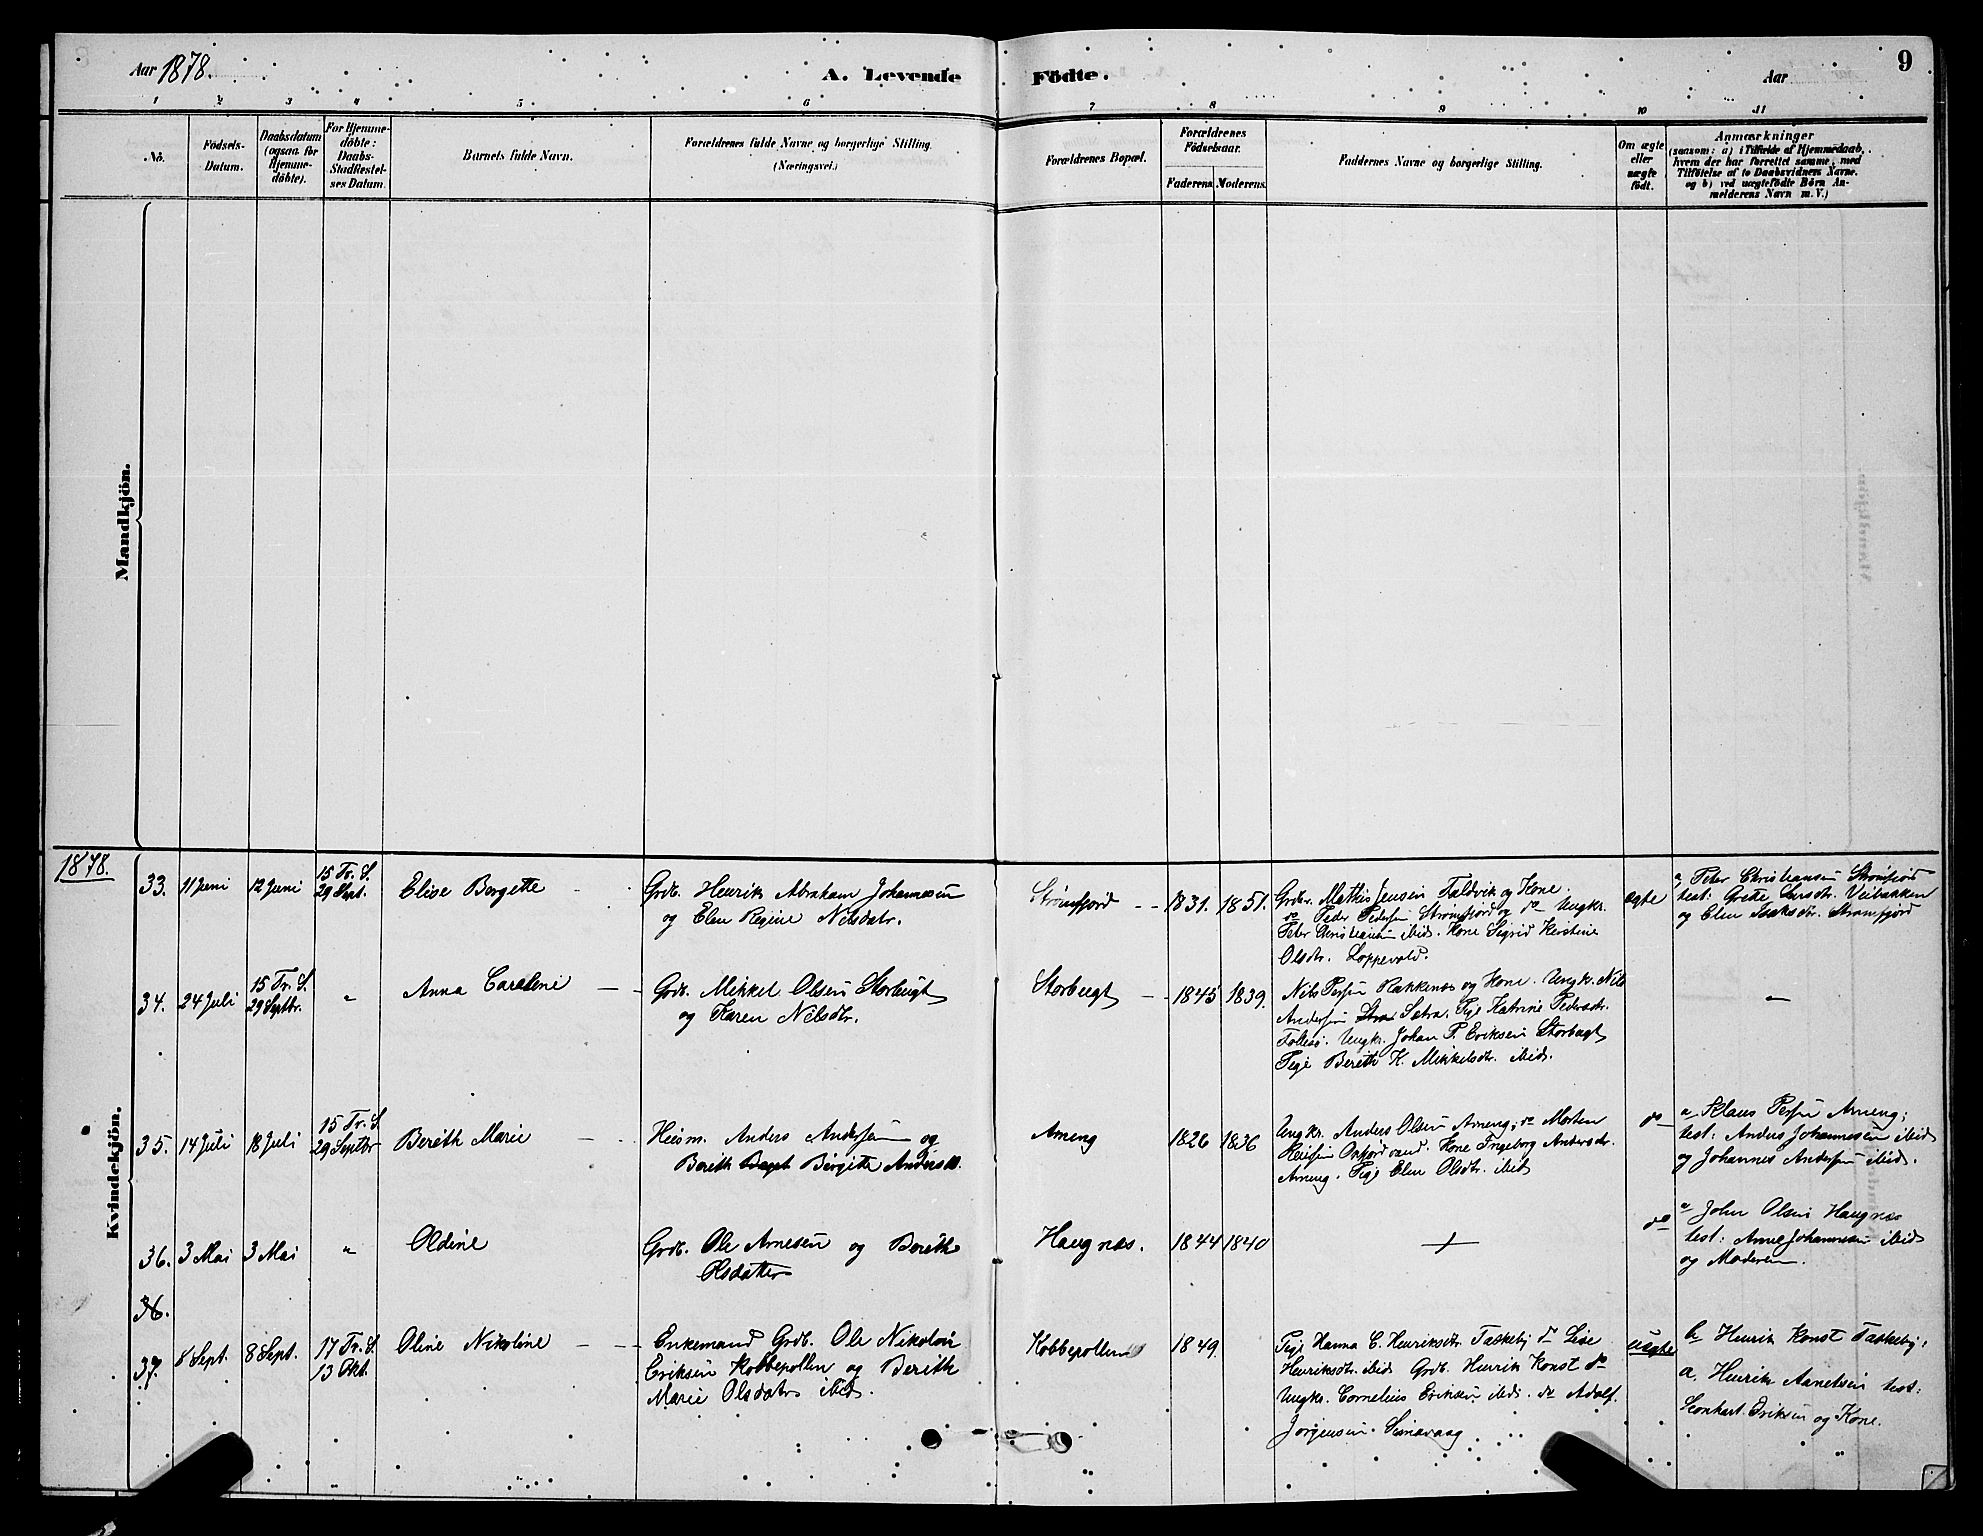 Aar 1878.
A. Levende
Födte.
Aar
9
1 2 3 4 5 6 7 8 9 10 11
No.
Födsels-
Datum.
Daabsdatum
(ogsaa for
Hjemme-
döbte).
For Hjemme-
döbte:
Daabs-
Stadfæstel-
ses Datum.
Barnets fulde Navn.
Forældrenes fulde Navne og borgerlige Stilling.
(Næringsvei.)
Forældrenes Bopæl.
Forældrenes
Födselsaar.
Faderens. Moderens.
Faddernes Navne og borgerlige Stilling.
Om ægte
eller
uægte
födt.
Anmærkninger
(saasom: a) i Tilfælde af Hjemmedaab,
hvem der har forrettet samme, med
Tilföielse af to Daabsvidners Navne.
og b) ved uægtefödte Börn An-
melderens Navn m. V.)
Mandkjön.
Kvindekjön.
1878.
33. 11 Juni 12 Juni
15 Tr. S.
29 Sept.
Elise Bergette
Grdb. Henrik Abraham Johannesen
og Elen Regine Nilsdatr.
Strømfjord 1831. 1851.
Grdbr. Mathis Jensen Faldvik og Kone.
do Peder Pedersen Strømfjord og do Ungkr.
Peter Christiansen ibid. Kone Sigrid Kirstine
Olsdtr. Loppevold.
ægte
a, Peter Christiansen Strømfjord
test: Grete Larsdtr. Veibakken
og Elen Isaksdtr. Strømfjord
34. 24 Juli
15 Tr. S.
29 Septbr.
"
Anna Caroline
Grdb. Mikkel Olsen Storbugt
og Karen Nilsdtr.
Storbugt 1845 1839.
Nils Persen Rakkenæs og Kone. Ungkr. Nils
Andersen Sætra. Pige Katrine Pedersdtr.
Follesø. Ungkr. Johan P. Eriksen Storbugt
Pige Berith K. Mikkelsdtr. ibid.
"
35. 14 Juli 18 Juli
15 Tr. S
29 Septbr
Berith Marie
Huusm. Anders Andersen og
Berith Birgitte Andersd.
Arneng 1826 1836
Ungkr. Anders Olsen Arneng; do Morten
Oxfjordvand. Kone Ingeborg Andersdr.
Arneng. Pige Elen Olsdtr. ibid
do
a Klaus Persen Arneng;
test: Anders Johannesen ibid
og Johannes Andersen ibid.
36. 3 Mai 3 Mai "
Oldine
Grdb. Ole Arnesen og Berith
Olsdatter
Haugnæs. 1844 1840
+
do
a John Olsen Haugnæs
test: Arne Johannesen ibid
og Moderen.
36.
37. 8 Sept. 8 Sept.
17 Tr. S.
13 Okt.
Oline Nikoline
Enkemand Grdb. Ole Nikolai
Eriksen Kobbepollen og Berith
Marie Olsdatr ibid.
Kobbepollen 1849
Pige Hanna C. Henriksdtr. Taskeby do Lise
Henriksdtr. ibid Grdb. Henrik Konst do
Ungkr. Cornelius Eriksen ibid. do Adolf
Jørgensen Simavaag
uægte
b, Henrik Konst Taskeby;
a, Henrik Aanetsen test:
Leonhart Eriksen og Kone.